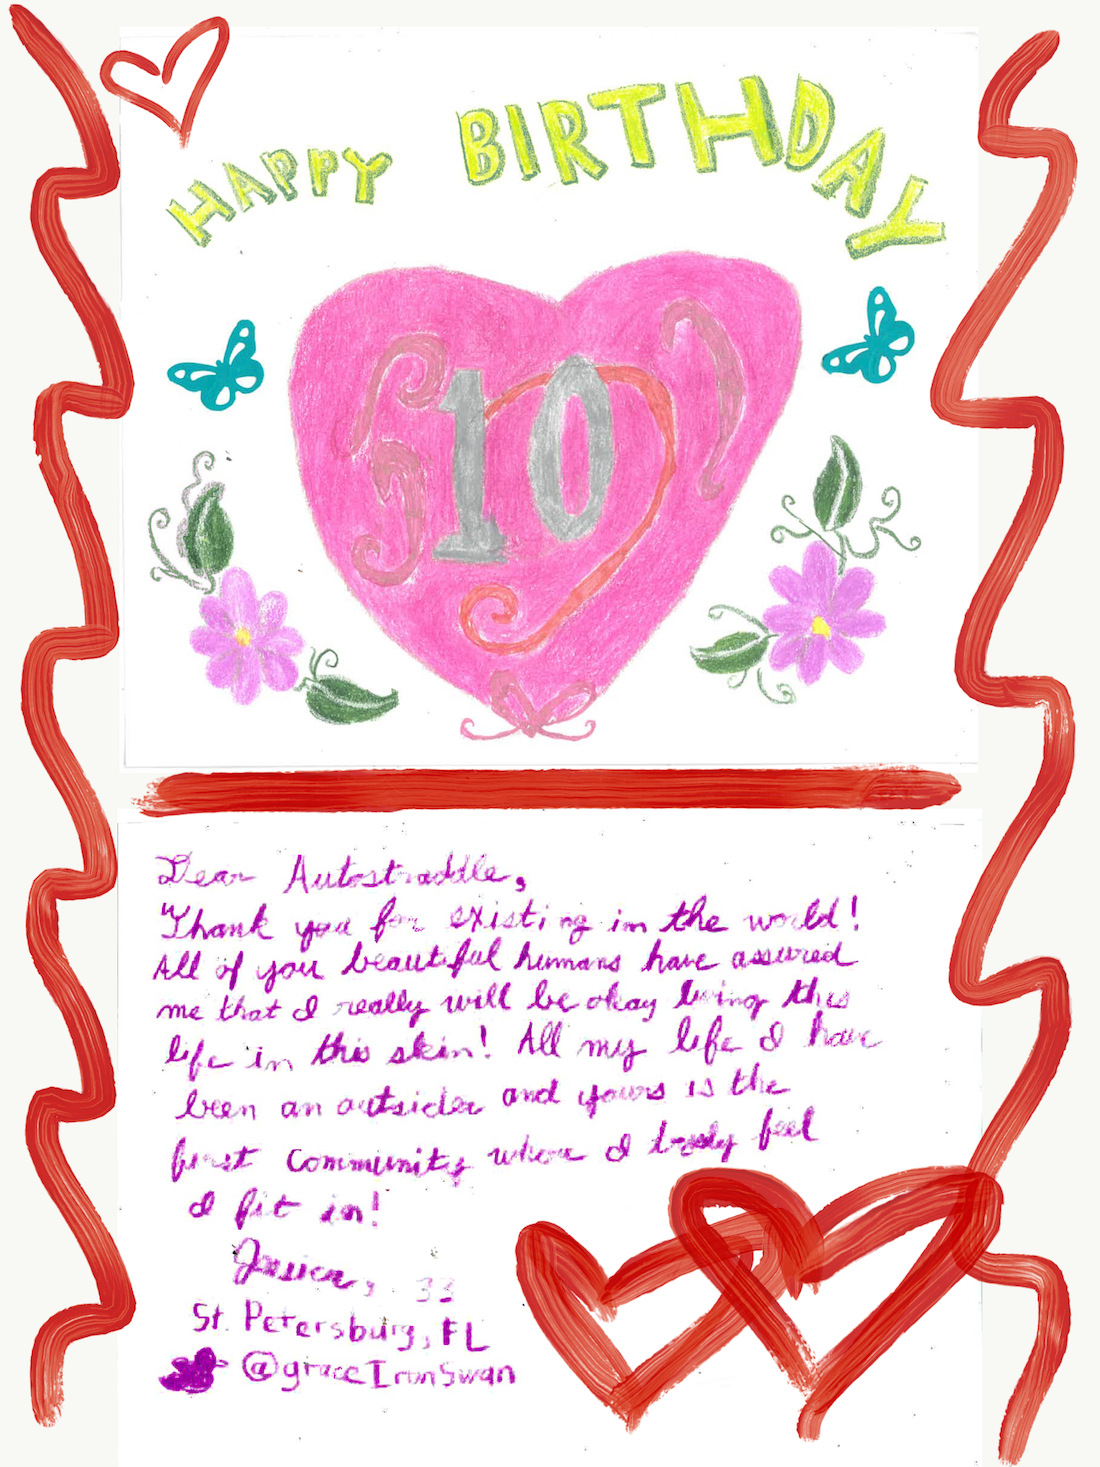 HAPPY BIRTHDAY
10
Dear Autostraddle,
Thank you for existing in the world!
All of you beautiful humans have assured
me that I really will be okay living this
life in this skin! All my life I have
been an outsider and yours is the
first community where I truly feel
I fit in!
Jessica, 33
St. Petersburg, FL
@graceIronSwan